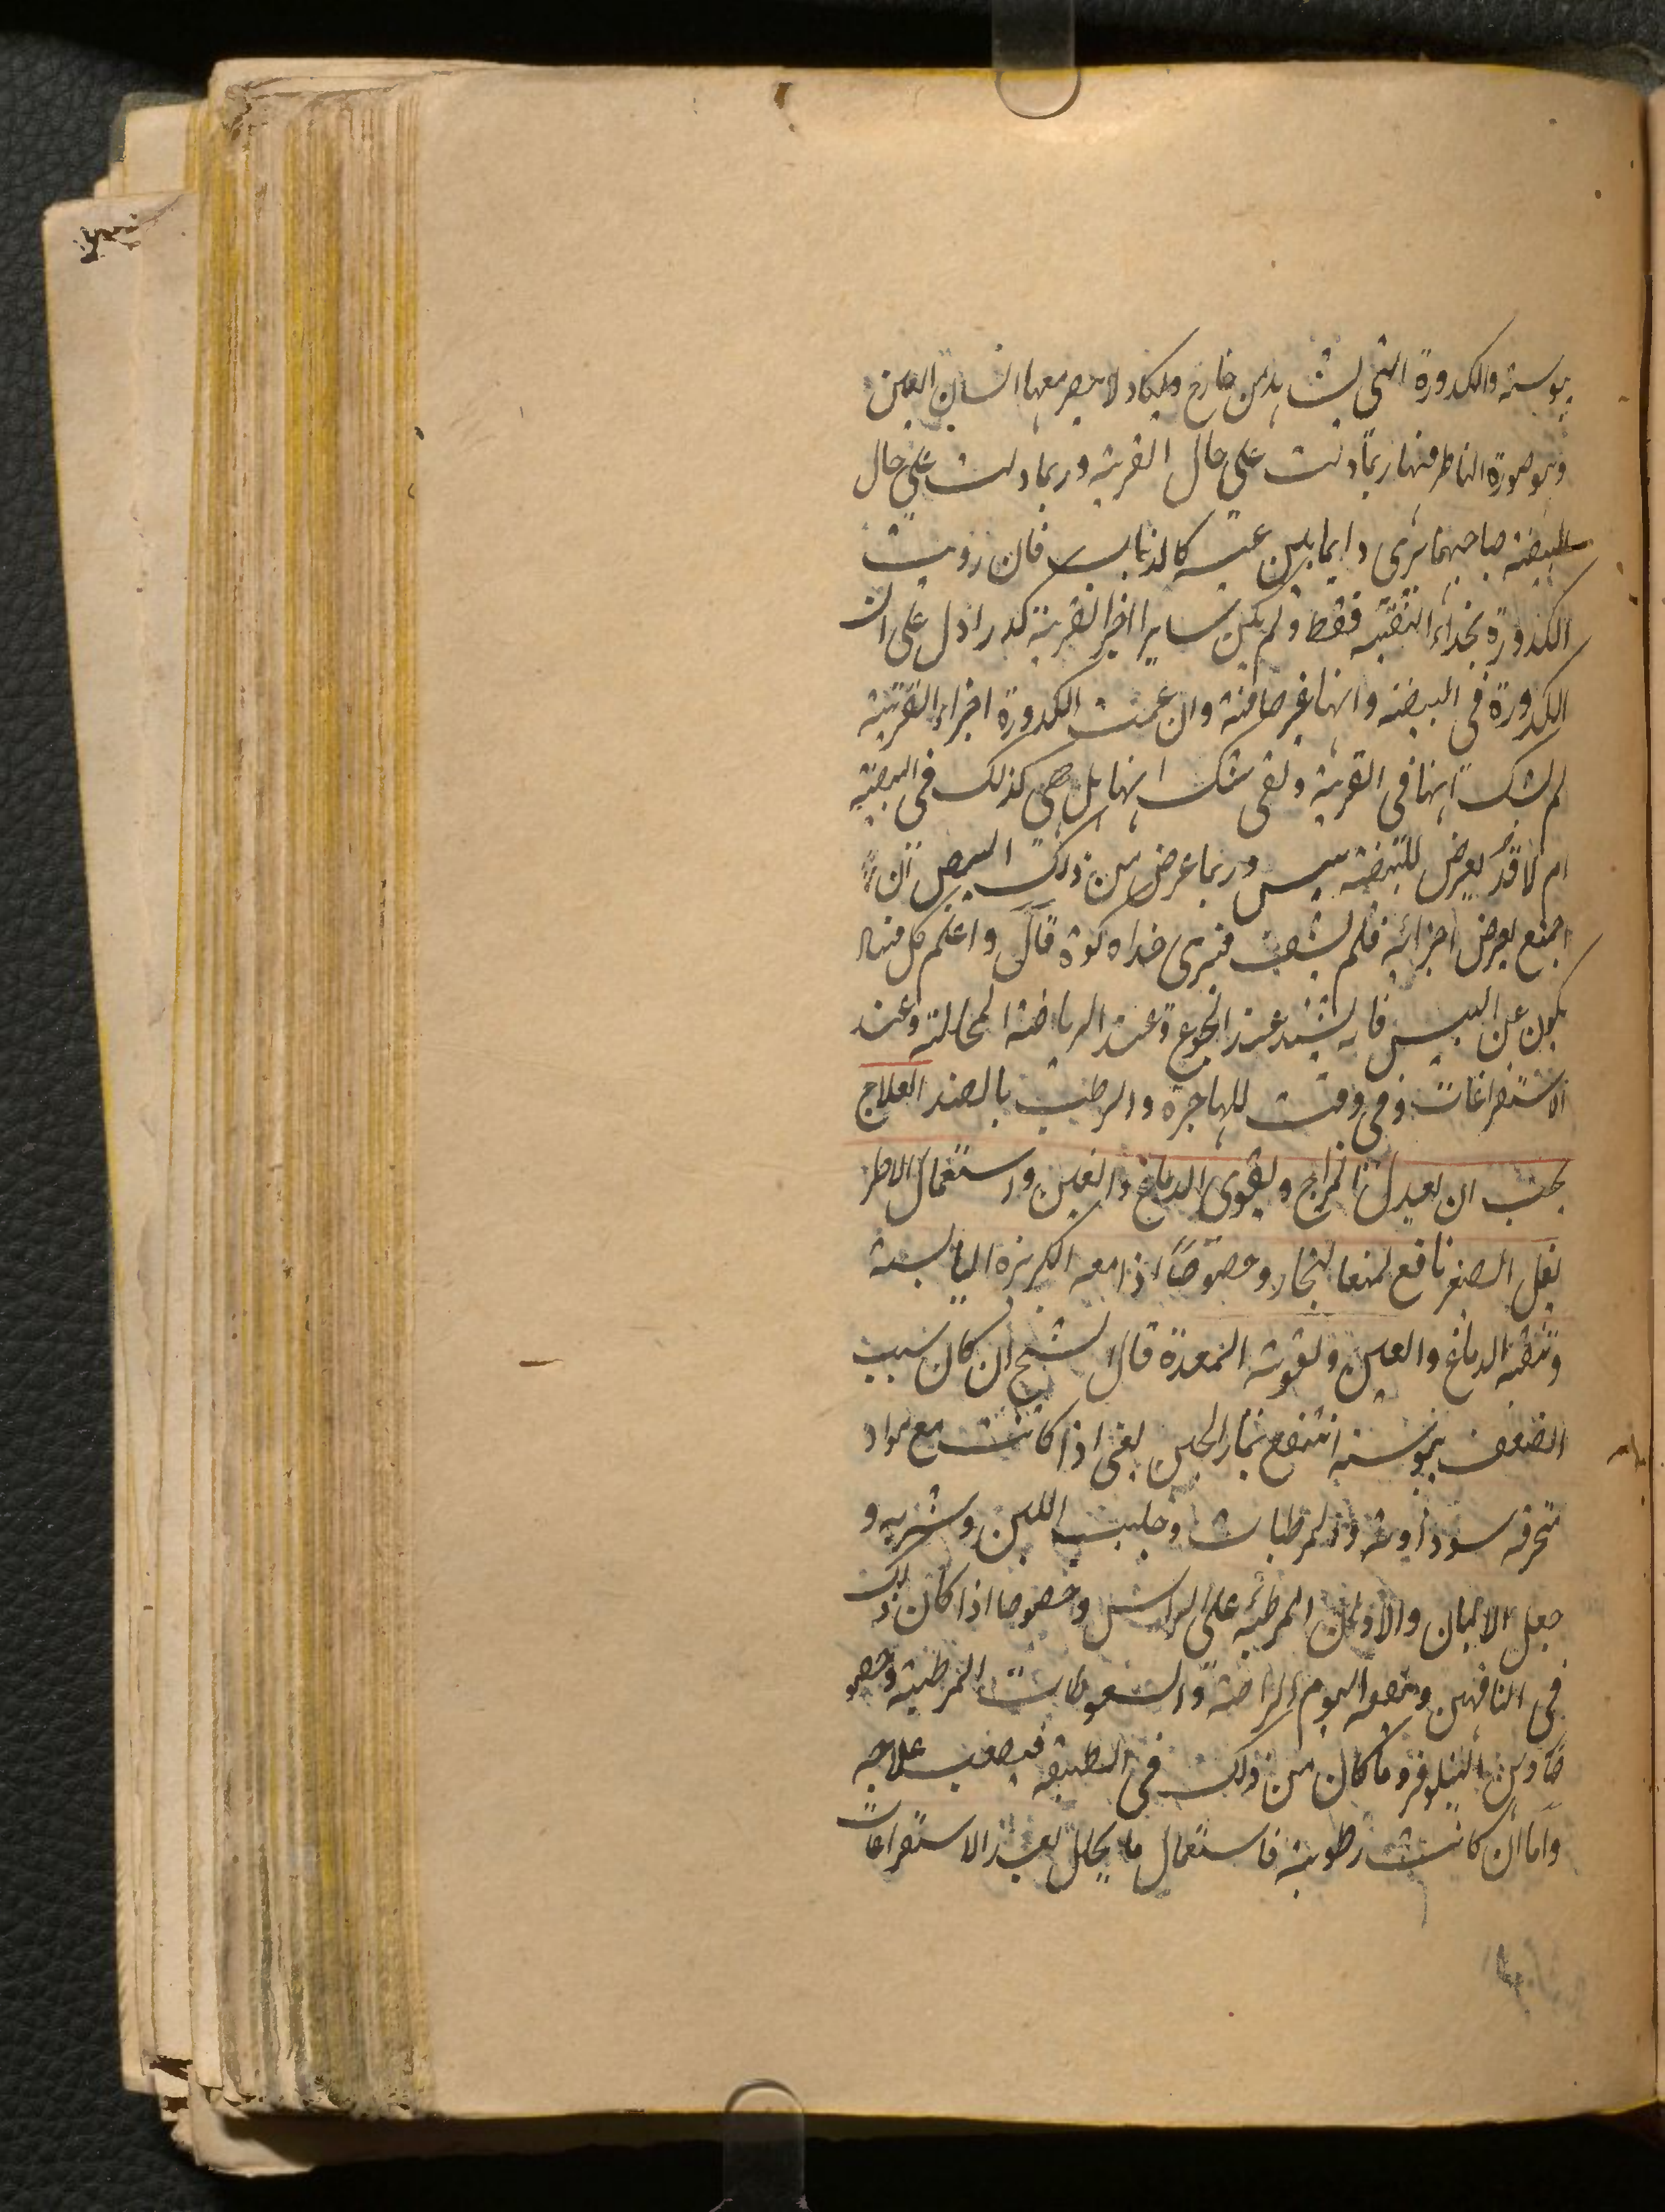 يبوسته والكدورة التي تشاهد من خارج ويكاد لا يبصر معها انسان العين
وهو صورة الناظر فيها ربما دلت على حال القرنية وربما دلت على حال
البيضة صاحبهما يرى دايما بين عينيه كالذباب فان رويت
الكدورة بحذاء الثقبة فقط ولم يكن ساير اجزا القرنية كدرا دل على ان
الكدورة في البيضة وانها غير صافية وان عمت الكدورة اجزاء القرنية
لم يشك انها في القرنية وبقي شك انها هل هي كذلك في البيضة
ام لا قد يعرض للبيضة يبس وربما عرض من ذلك اليبس ان
اجتمع بعض اجزائه فلم يشف فيرى حذاه كوة قال واعلم كل منها
يكون عن اليبس فانه يشتد عند الجوع وعند الرياضة المحللة وعند
الاستفراغات وفي وقت الهاجرة والرطب بالضد العلاج
يجب ان يعدل المزاج ويقوي الدماغ والعين واستعمال الاطر
يفل الصغير نافع لمنعه البخار وخصوصًا اذا معه الكزبرة اليابسة
وتنقية الدماغ والعين وتقوية المعدة قال الشيخ ان كان سبب
الضعف يبوسة انتفع بماء الجبن يعني اذا كانت مع مواد
محترقة سوداوية والمرطبات وحليب اللبن وشربه و
جعل الالبان والادهان المرطبة على الراس وخصوصا اذا كان ذلك
في الناقهين وينفعه النوم والراحة والسعوطات المرطبة وخصو
صًا دهن النيلوفر وما كان من ذلك في الطبقة فيصعب علاجه
واما ان كانت رطوبة فاستعمال ما يحلل بعد الاستفراغات